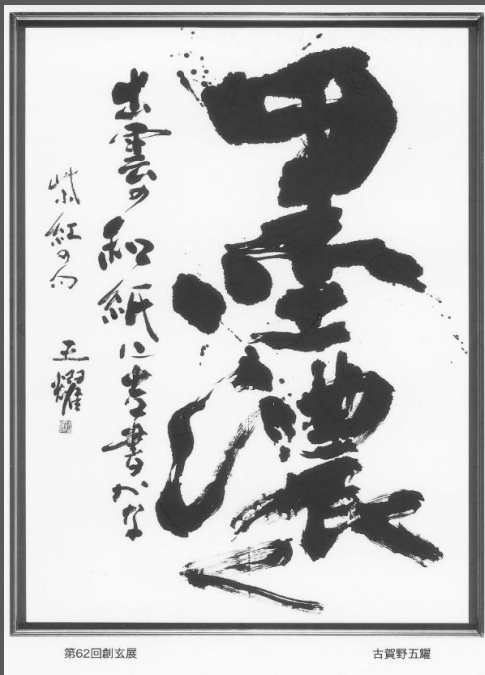 墨濃く
出雲の和紙に吉書かな
紫紅の句 五耀
第62回創玄展
古賀野五耀